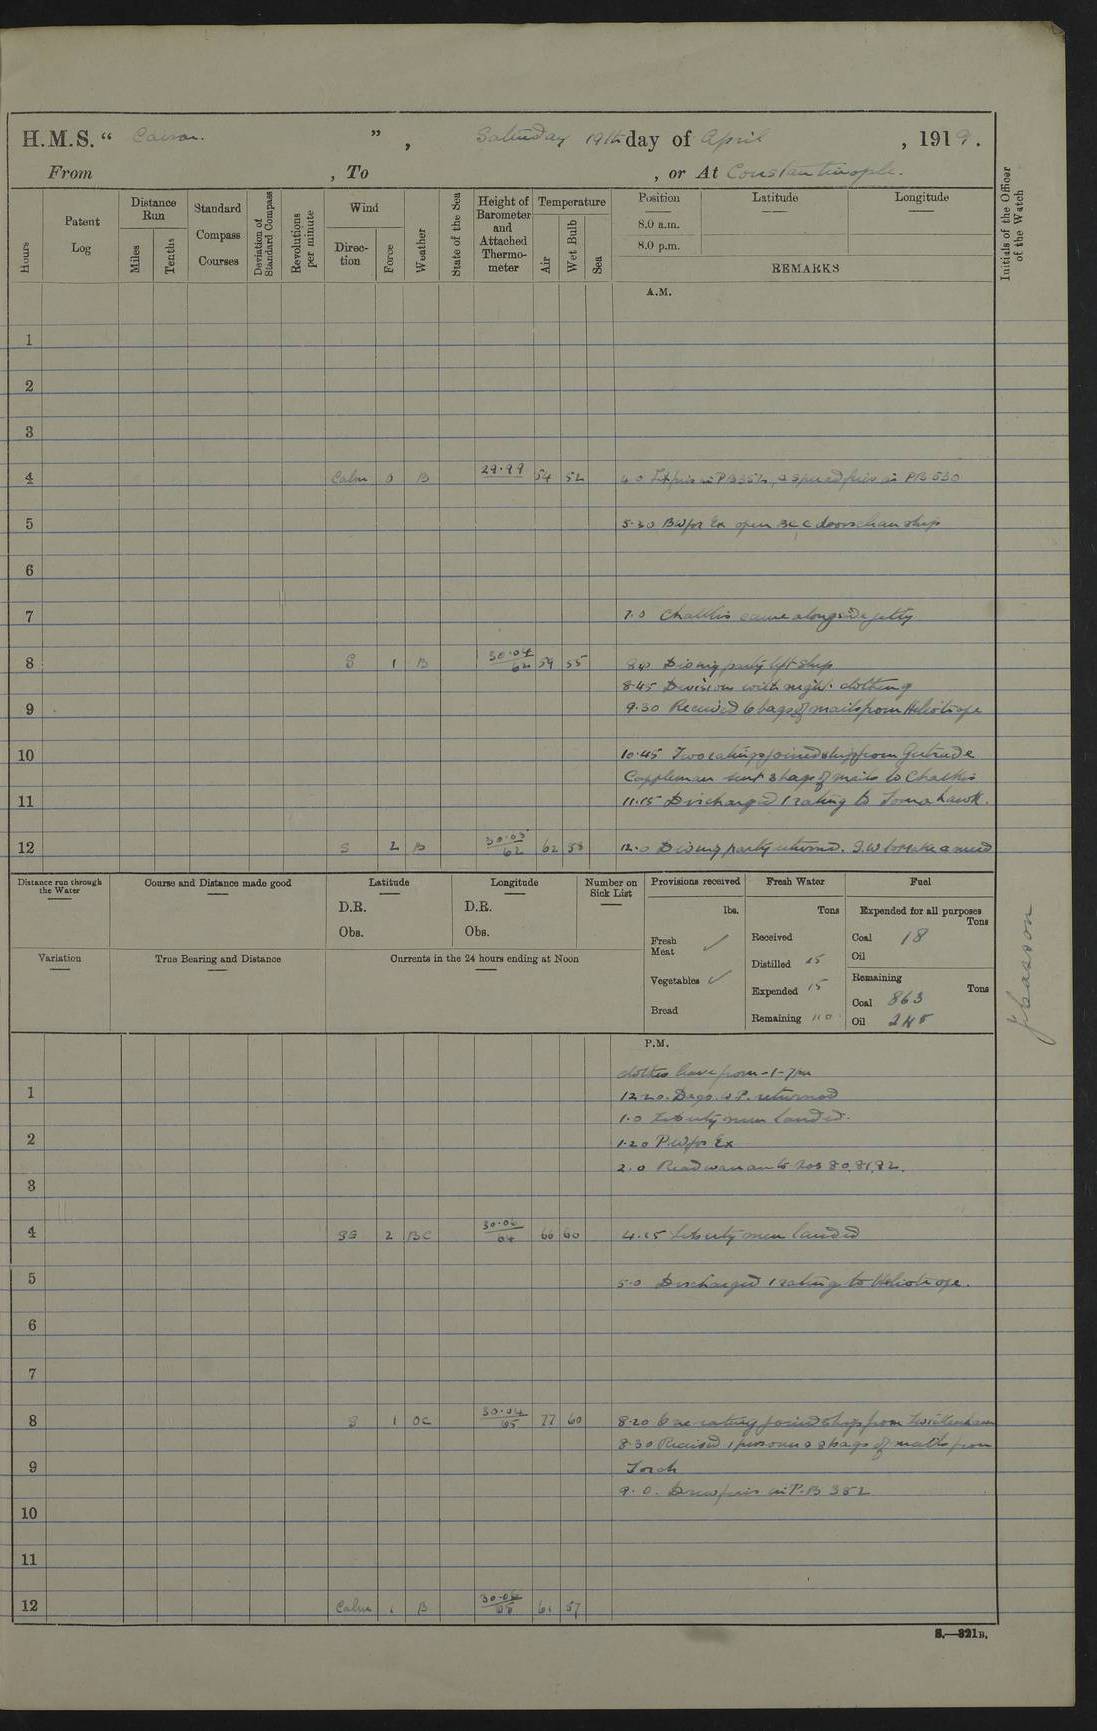 H.M.S. “ ”, Saturday 19th day of April, 1919.
From , To , or At Constantinople.
Hours
Patent Log
Distance Run
Miles
Tenths
Standard Compass Courses
Deviation of Standard Compass
Revolutions per minute
Wind
Direction
Force
Weather
State of the Sea
Height of Barometer and Attached Thermometer
Temperature
Air
Wet Bulb
Sea
Position
8.0 a.m.
8.0 p.m.
Latitude
Longitude
REMARKS
Initials of the Officer of the Watch
A.M.
1
2
3
4 Calm 0 B 29.99 54 52 fires in PB 352, & spread fires in PB 530
5 5.30 open doors clean ship
6
7 7.0 Chalkis came alongside jetty
8 S 1 B 30.04 62 59 55 Diving party left ship
8.45 Divisions with night clothing
9 9.30 Received 6 bags of mails from Heliotrope
10 10.45 Two ratings joined ship from
sent 3 bags of mails to Chalkis
11 11.15 Discharged 1 rating to Tomahawk.
12 S 2 B 30.05 62 62 58 12.0 Diving party returned. to Make & mend
Distance run through the Water
Course and Distance made good
Latitude
D.R.
Obs.
Longitude
D.R.
Obs.
Number on Sick List
Provisions received
lbs.
Fresh Meat ✓
Vegetables ✓
Bread
Fresh Water
Tons
Received
Distilled 25
Expended 15
Remaining 110
Fuel
Expended for all purposes
Tons
Coal 18
Oil
Remaining
Tons
Coal 863
Oil 245
Variation
True Bearing and Distance
Currents in the 24 hours ending at Noon
P.M.
clothes leave from 1-7pm
1 12.20. returned
1.0 Liberty men landed.
2 1.20 for Ex
2.0 Read warrants Nos 80, 81, 82.
3
4 2 BC 30.06 64 66 60 4.15 Liberty men landed
5 5.0 Discharged 1 rating to Heliotrope.
6
7
8 S 1 OC 30.04 65 77 60 8.20 One rating joined ship from Twickenham
8.30 Received 1 & 2 bags of mails from
9 Torch
9.0. Drew fires in P.B 352
10
11
12 Calm 1 B 30.06 65 61 57
S.—321B.